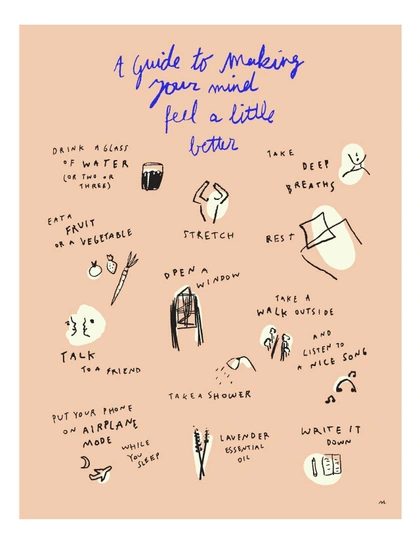 A guide to making
your mind
feel a little
better
DRINK A GLASS
OF WATER
(OR TWO OR
THREE)
TAKE
DEEP
BREATHS
STRETCH
EAT A
FRUIT
OR A VEGETABLE
REST
OPEN A
WINDOW
TAKE A
WALK OUTSIDE
AND
LISTEN TO
A NICE SONG
TALK
TO A FRIEND
TAKE A SHOWER
PUT YOUR PHONE
ON AIRPLANE
MODE
WHILE
YOU
SLEEP
LAVENDER
ESSENTIAL
OIL
WRITE IT
DOWN